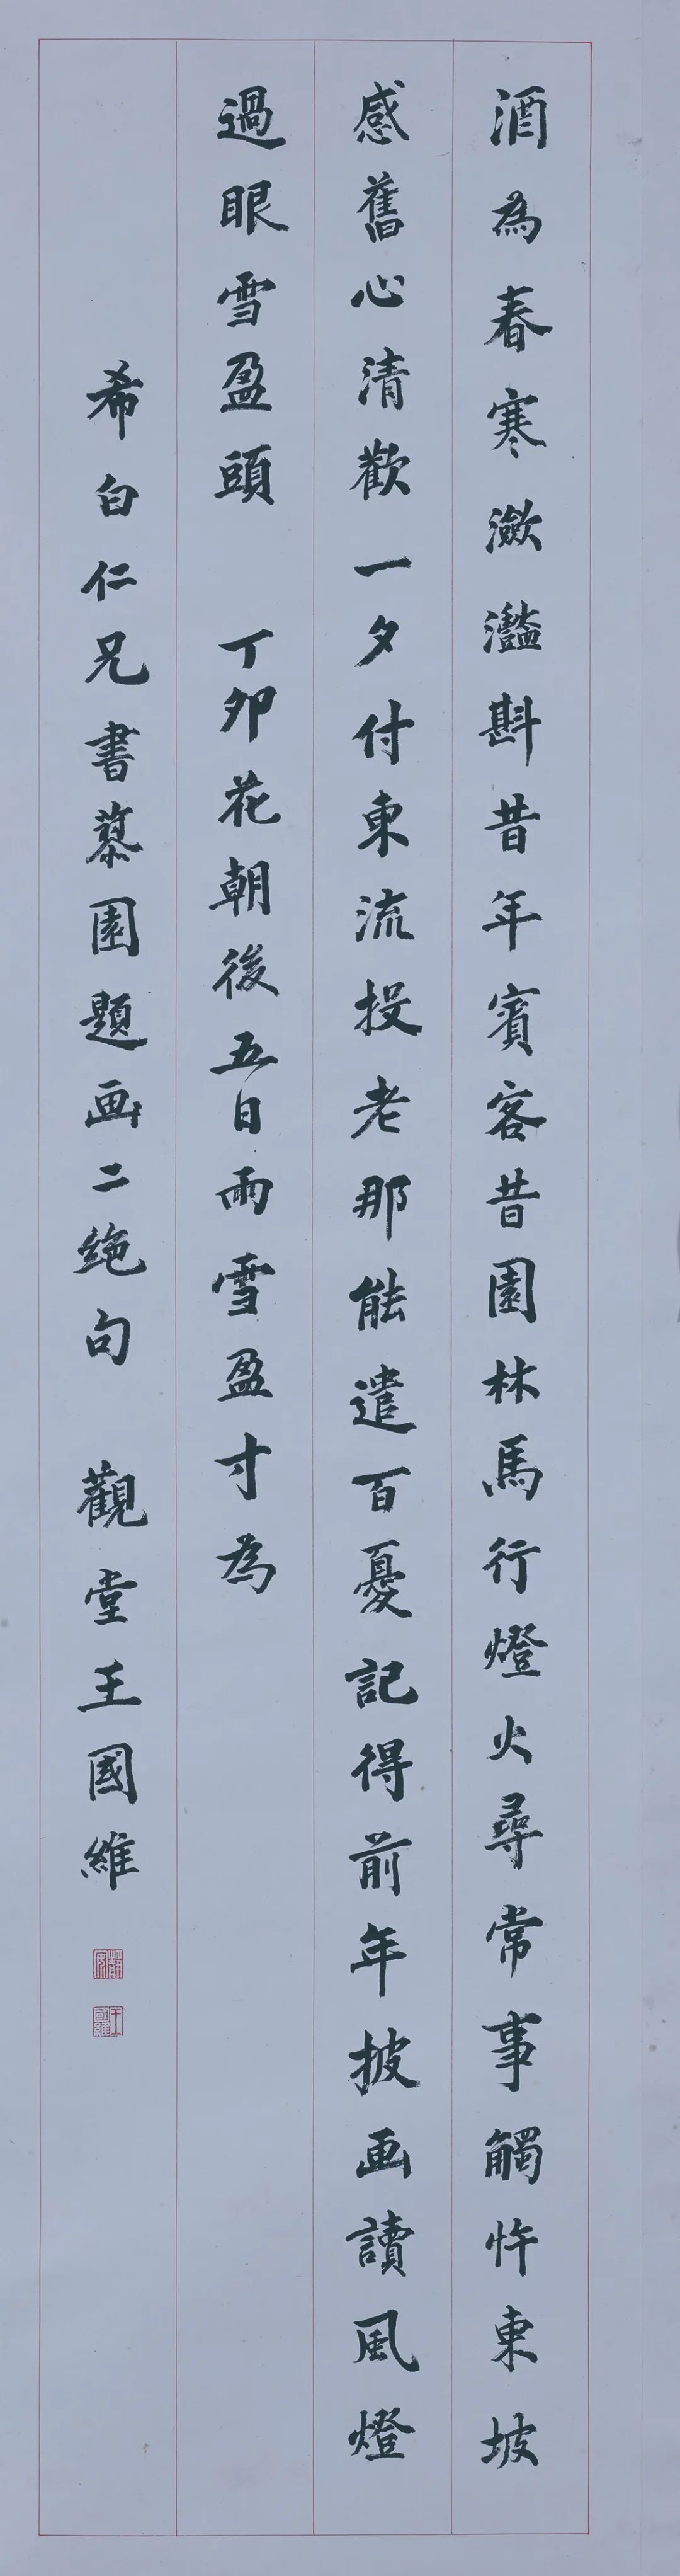 酒為春寒瀲灩斟昔年賓客昔園林馬行燈火尋常事觸忤東坡
感舊心清歡一夕付東流投老那能遣百憂記得前年披画讀風燈
過眼雪盈頭 丁卯花朝後五日雨雪盈寸為
希白仁兄書慕園題画二絶句 觀堂王國維
靜安
王國維